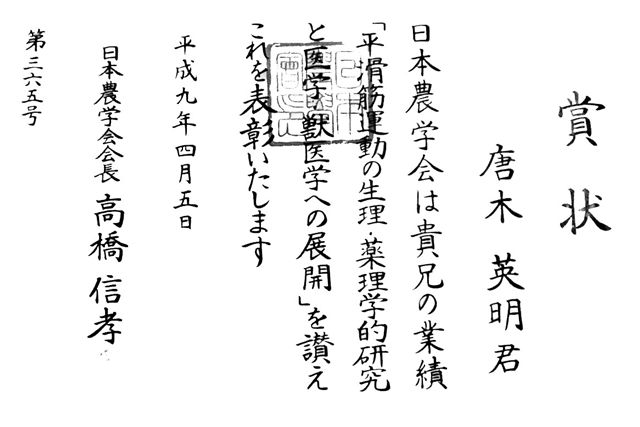 賞状
唐木英明君
日本農学会は貴兄の業績
「平滑筋運動の生理・薬理学的研究
と医学・獣医学への展開」を讃え
これを表彰いたします
平成九年四月五日
日本農学会会長 高橋信孝
第三六五号